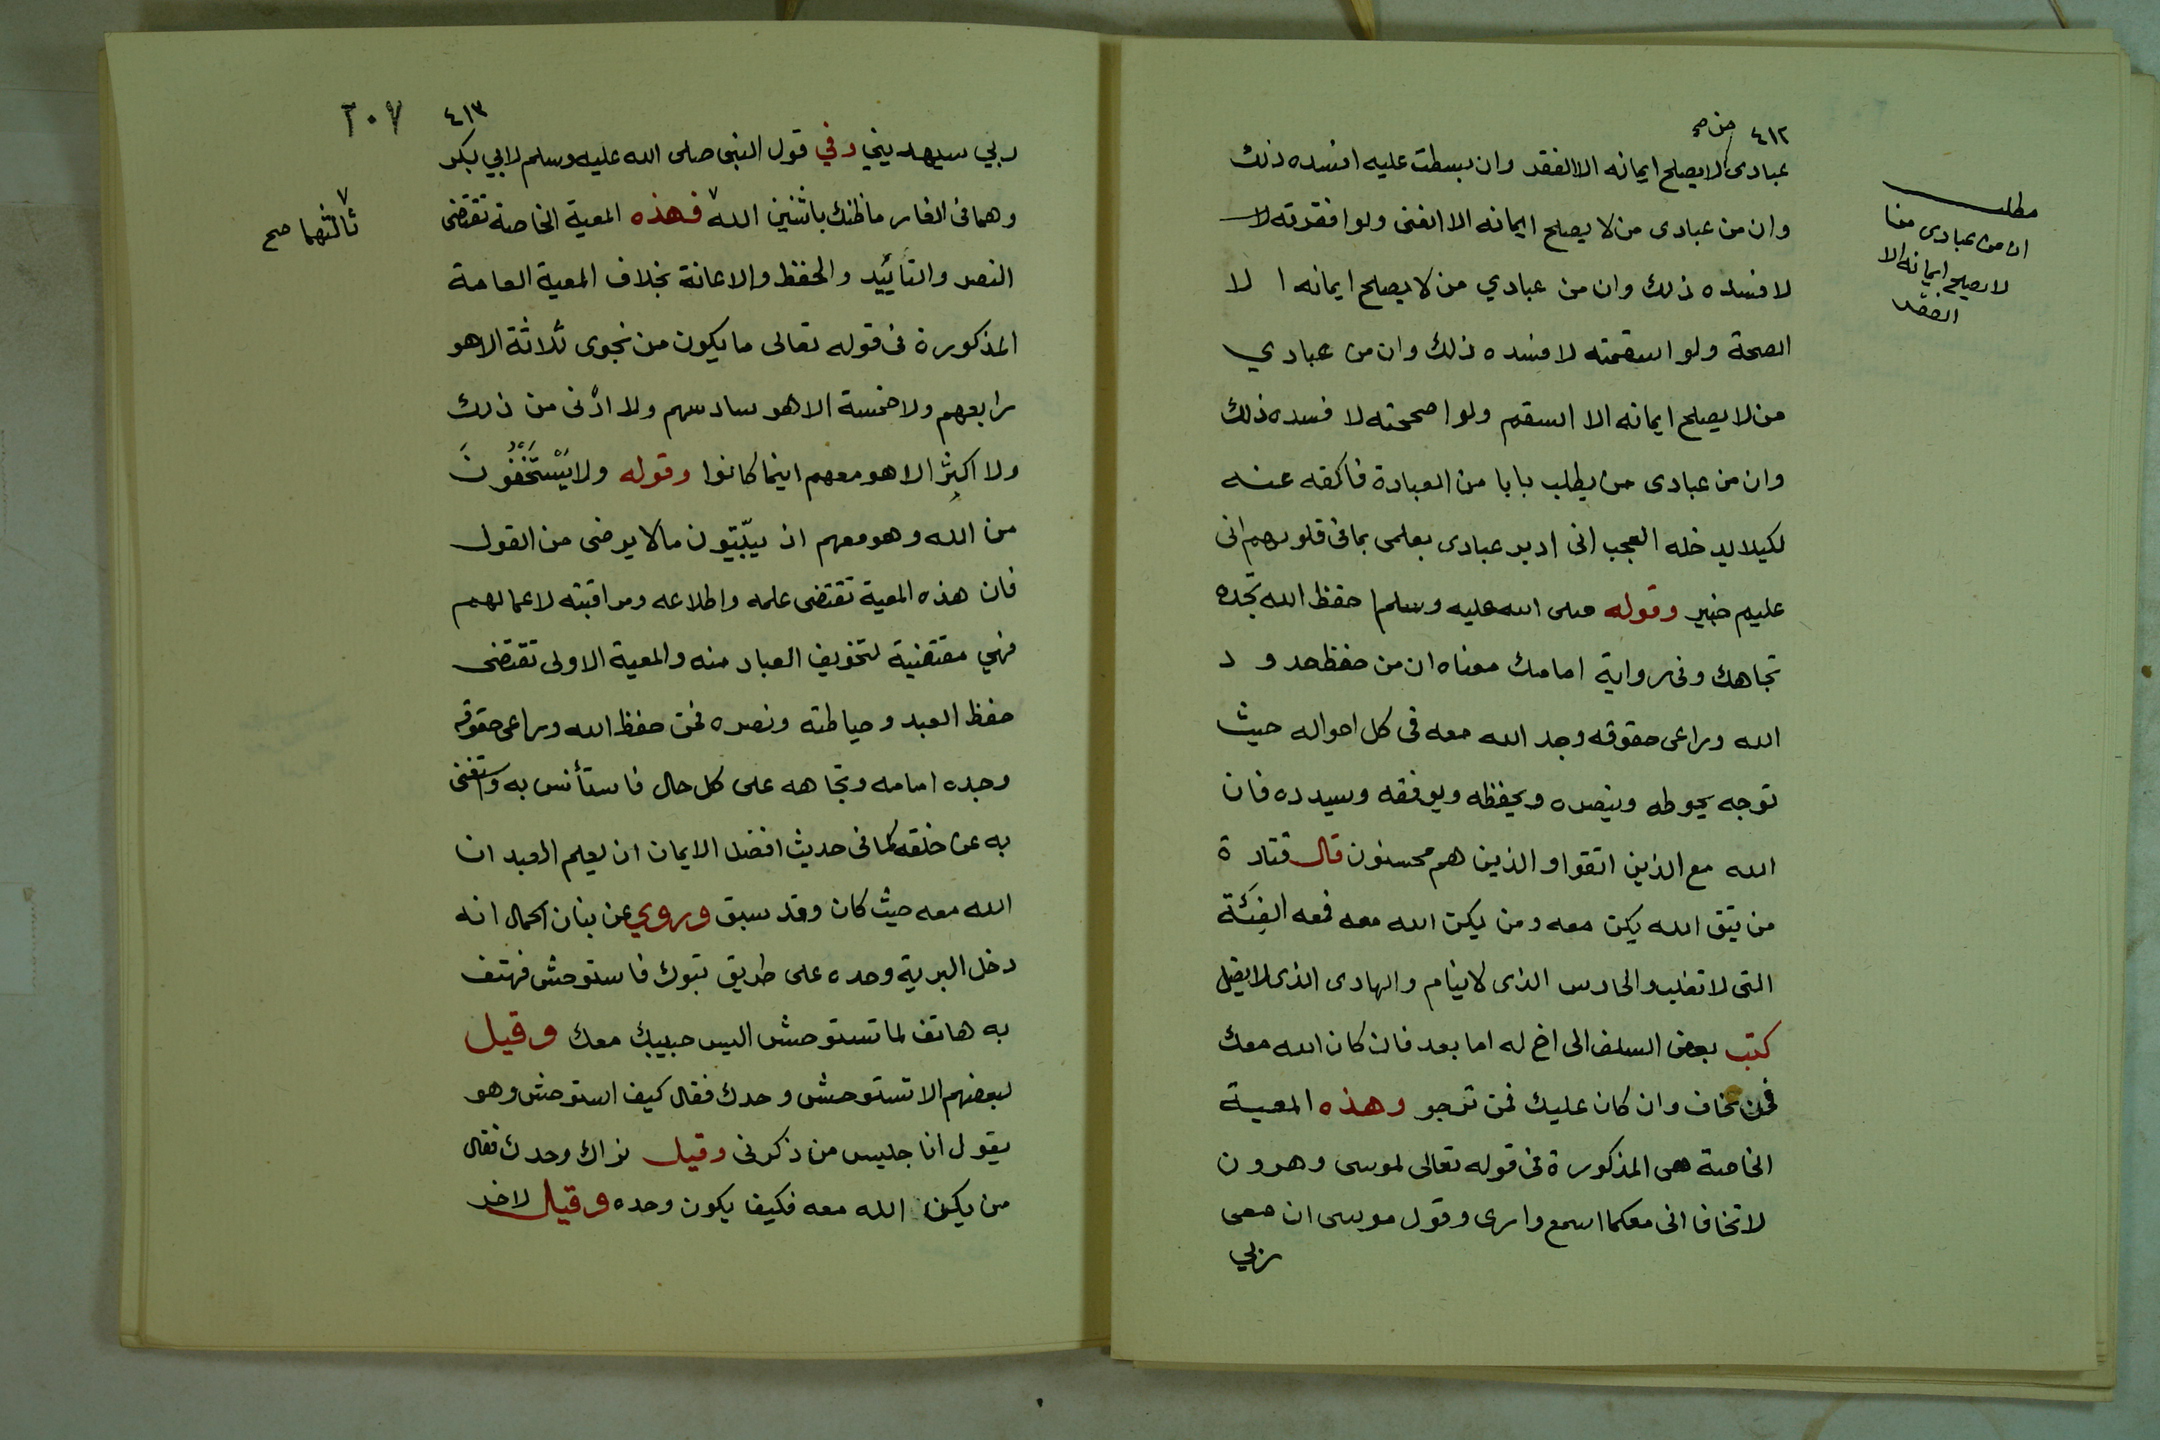 ٤١٢
من صح
عبادى لا يصلح ايمانه الا الفقد وان بسطت عليه افسده ذلك
وان من عبادى من لا يصلح ايمانه الا الغنى ولو افقرته لا
لافسده ذلك وان من عبادي من لا يصلح ايمانه ا لا
الصحة ولو اسقمته لافسده ذلك وان من عبادي
من لا يصلح ايمانه الا السقم ولو اصححته لافسده ذلك
وان من عبادى من يطلب بابا من العبادة فاكفه عنه
لكيلا يدخله العجب انى ادبر عبادى بعلمى بما فى قلوبهم انى
عليم خبير وقوله صلى الله عليه وسلم احفظ الله تجده
تجاهك وفى رواية امامك معناه ان من حفظ حدو د
الله وراعى حقوقه وجد الله معه فى كل احواله حيث
توجه يحوطه وينصره ويحفظه ويوفقه ويسدده فان
الله مع الذين اتقوا والذين هم محسنون قال قتادة
من يتق الله يكن معه ومن يكن الله معه فمعه الفِئَة
التى لا تغلب والحارس الذى لا ينام والهادى الذى لا يضل
كتب بعض السلف الى اخ له اما بعد فان كان الله معك
فمن تخاف وان كان عليك فمن ترجو وهذه المعية
الخاصة هى المذكورة فى قوله تعالى لموسى وهرون
لا تخافا انى معكما اسمع وارى وقول موسى ان معى
ربي
مطلب
ان من عبادى من
لا يصلح ايمانه الا
الفقر
٤١٣
٢٠٧
ربي سيهديني وفي قول النبى صلى الله عليه وسلم لابي بكر
وهما فى الغار ما ظنك باثنين الله ٧ فهذه المعية الخاصة تقتضى
٧
ثالثهما صح
النصر والتأييد والحفظ والاعانة بخلاف المعية العامة
المذكورة فى قوله تعالى ما يكون من نجوى ثلاثة الا هو
رابعهم ولا خمسة الا هو سادسهم ولا ادْنى من ذلك
ولا اكثر الا هو معهم اينما كانوا وقوله ولا يَسْتَخْفُونَ
من الله وهو معهم اذ يبّيتون ما لا يرضى من القول
فان هذه المعية تقتضى علمه واطلاعه ومراقبته لاعمالهم
فهي مقتضية لتخويف العباد منه والمعية الاولى تقتضى
حفظ العبد وحياطته ونصره فمن حفظ الله وراعى حقوقه
وجده امامه وتجاهه على كل حال فاستأنس به واستغنى
به عن خلقه كما فى حديث افضل الايمان ان يعلم العبد ان
الله معه حيث كان وقد سبق وروي عن بنان الحمال انه
دخل البرية وحده على طريق تبوك فاستوحش فهتف
به هاتف لما تستوحش اليس حبيبك معك وقيل
لبعضهم الا تستوحش وحدك فقال كيف استوحش وهو
يقول انا جليس من ذكرنى وقيل نراك وحدك فقال
من يكن الله معه فكيف يكون وحده وقيل لاخر